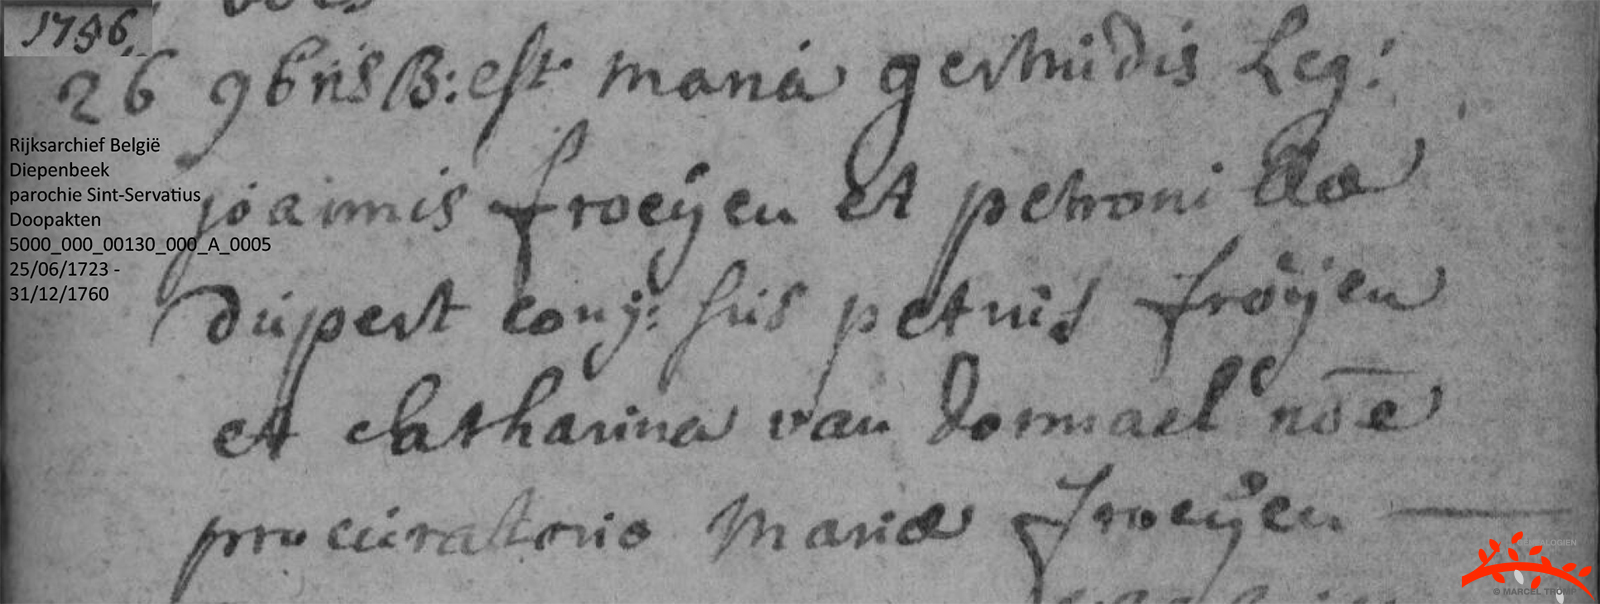 1756
26 9bris B: est maria gertrudis Leg:
Rijksarchief België
Diepenbeek
parochie Sint-Servatius
Doopakten
5000_000_00130_000_A_0005
25/06/1723 -
31/12/1760
joannis froeÿen et petronillæ
dupert conj: sus petrus froÿen
et Catharina van dormael nōe
procuratorio Mariæ froeÿen
© MARCEL TROMP